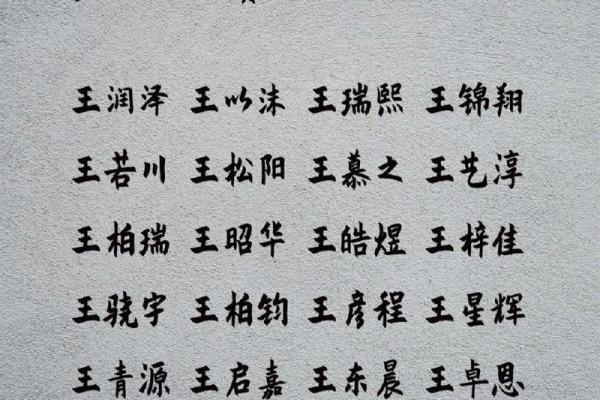 王润泽 王以沫 王瑞熙 王锦翔
王若川 王松阳 王慕之 王艺淳
王柏瑞 王昭华 王皓煜 王梓佳
王骁宇 王柏钧 王彦程 王星辉
王青源 王启嘉 王东晨 王卓恩